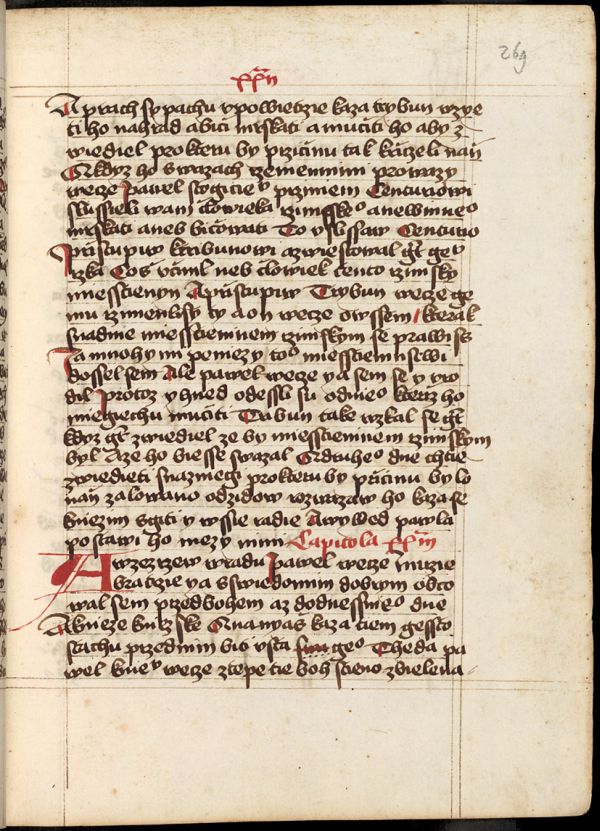 269
XXII
A prach sypachu v powietrzie kaza trybun wzye
ti ho na hrad a biči mrskati a mučiti ho aby z
wiediel pro kteru by przičinu tak křičeli naň
A kdyz ho swazach rzemennim prowazy
wecze Pawel stogicie przi niem Centurionowi
slussieli wam člowieka rzimskeo a newinneo
mrskati aneb bičowati To vslyssaw Centurio
Pristupiw k tribunowi a zwiestowal gt
rzka Co vcinil neb člowiek tento rzimsky
miesstienyn A pristupiw Trybun wecze ge
mu rzimenlisy ty a on wecze owssem Kterak
snadnie miesstieninem rzimskym se prawi sy
Ja mnohymi peniezy toto miesstienstwi
dossel sem Ale pawel wecze y a sem se y vro
dil Protoz yhned odessli su odnieo kterzi ho
miegiechu mučiti Tribun take wzkal se
kdyz zwiediel ze by miesstieninem rzimskym
byl A ze ho biesse swazal A druheo dne chtie
zwiedieti snazniegi pro kteru by pričinu bylo
naň zalowano od zidow rozwazaw ho kaza se
kniezim sgiti y wssie radie A wywed pawla
postawi ho mezy nimi Capitola XXIII
A wzezrzew w radu Pawel wecze muzie
bratrzie ya s swiedomim dobrym obco
wal sem przed bohem az do dnessnieo dne
A knieze kniezske Ananyas kaza tiem gessto
stachu przed nim biti vsta geo Theda pa
wel knemu wecze ztepe tie boh stieno zbielena